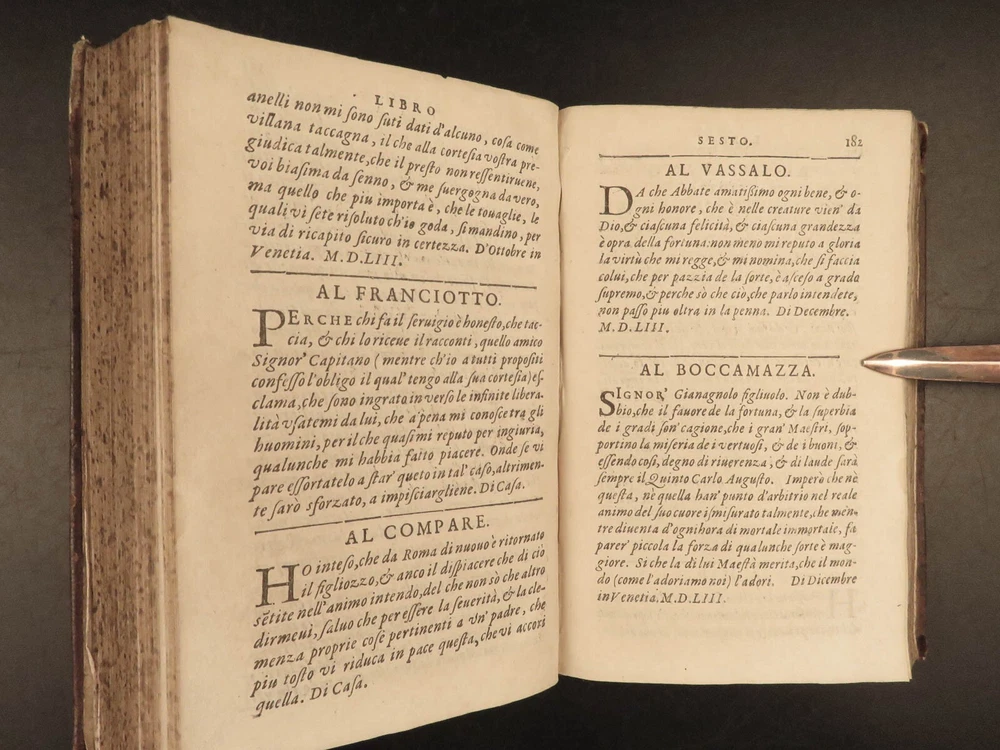 LIBRO
anelli non mi ſono ſuti dati d'alcuno, coſa come
villana taccagna, il che alla corteſia voſtra pre-
giudica talmente, che il preſto non reſſentiruene,
voi biaſima da ſenno, & me ſuergogna da vero,
ma quello che piu importa è, che le touaglie, le
quali vi ſete riſoluto ch'io goda, ſi mandino, per
via di ricapito ſicuro in certezza. D'Ottobre in
Venetia. M.D.LIII.
AL FRANCIOTTO.
PERCHE chi fa il ſeruigio è honeſto, che tac-
cia, & chi lo riceue il racconti, quello amico
Signor' Capitano (mentre ch'io a tutti propoſiti
confeſſo l'obligo il qual' tengo alla ſua corteſia) eſ-
clama, che ſono ingrato in verſo le infinite libera-
lità vſatemi da lui, che a pena mi conoſce tra gli
huomini, per il che quaſi mi reputo per ingiuria,
qualunche mi habbia fatto piacere. Onde ſe vi
pare eſſortatelo a ſtar' queto in tal' caſo, altrimen-
te ſarò sforzato, a impiſciargliene. Di Caſa.
AL COMPARE.
HO inteſo, che da Roma di nuouo è ritornato
il figliozzo, & anco il diſpiacere che di ciò
sẽtite nell'animo intendo, del che non sò che altro
dirmeui, ſaluo che per eſſere la ſeuerità, & la cle-
menza proprie coſe pertinenti a vn' padre, che
piu toſto vi riduca in pace queſta, che vi accori
quella. Di Caſa.
SESTO. 182
AL VASSALO.
DA che Abbate amatiſſimo ogni bene, & o-
gni honore, che è nelle creature vien' da
Dio, & ciaſcuna felicità, & ciaſcuna grandezza
è opra della fortuna: non meno mi reputo a gloria
la virtù che mi regge, & mi nomina, che ſi faccia
colui, che per pazzia de la ſorte, è aſceſo a grado
ſupremo, & perche sò che ciò, che parlo intendete,
non paſſo piu oltra in la penna. Di Decembre.
M.D.LIII.
AL BOCCAMAZZA.
SIGNOR' Gianagnolo figliuolo. Non è dub-
bio, che il fauore de la fortuna, & la ſuperbia
de i gradi ſon' cagione, che i gran' Maeſtri, ſop-
portino la miſeria de i vertuoſi, & de i buoni, &
eſſendo coſi, degno di riuerenza, & di laude ſarà
ſempre il Quinto Carlo Auguſto. Imperò che nè
queſta, nè quella han' punto d'arbitrio nel reale
animo del ſuo cuore iſmiſurato talmente, che men-
tre diuenta d'ognihora di mortale immortale, fa
parer' piccola la forza di qualunche ſorte è mag-
giore. Si che la di lui Maeſtà merita, che il mon-
do (come l'adoriamo noi) l'adori. Di Dicembre
in Venetia. M.D.LIII.